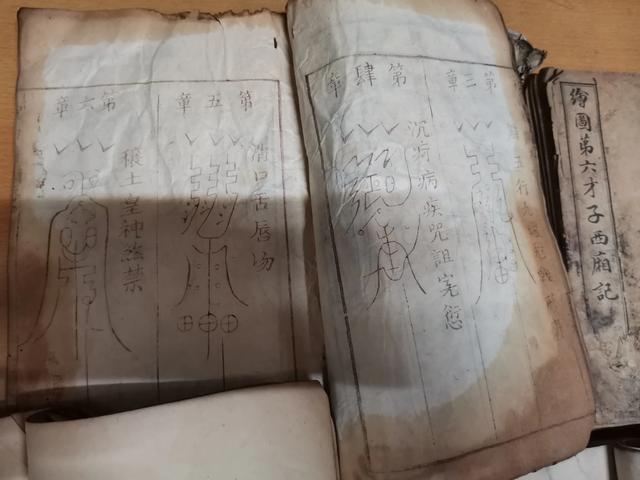 繪圖第六才子西廂記
第三章
五行
第肆章
沉疴病疾咒詛冤愆
第五章
消口舌唇汤
第六章
穰土皇神煞禁